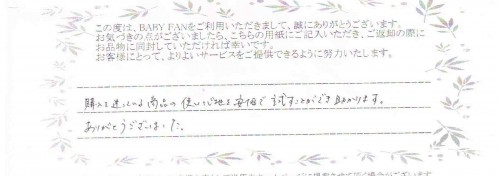 この度は、BABY FANをご利用いただきまして、誠にありがとうございます。
お気づきの点がございましたら、こちらの用紙にご記入いただき、ご返却の際に
お品物に同封していただければ幸いです。
お客様にとって、よりよいサービスをご提供できるように努力いたします。
購入を迷っている商品の使い心地を安価で試すことができ助かります。
ありがとうございました。